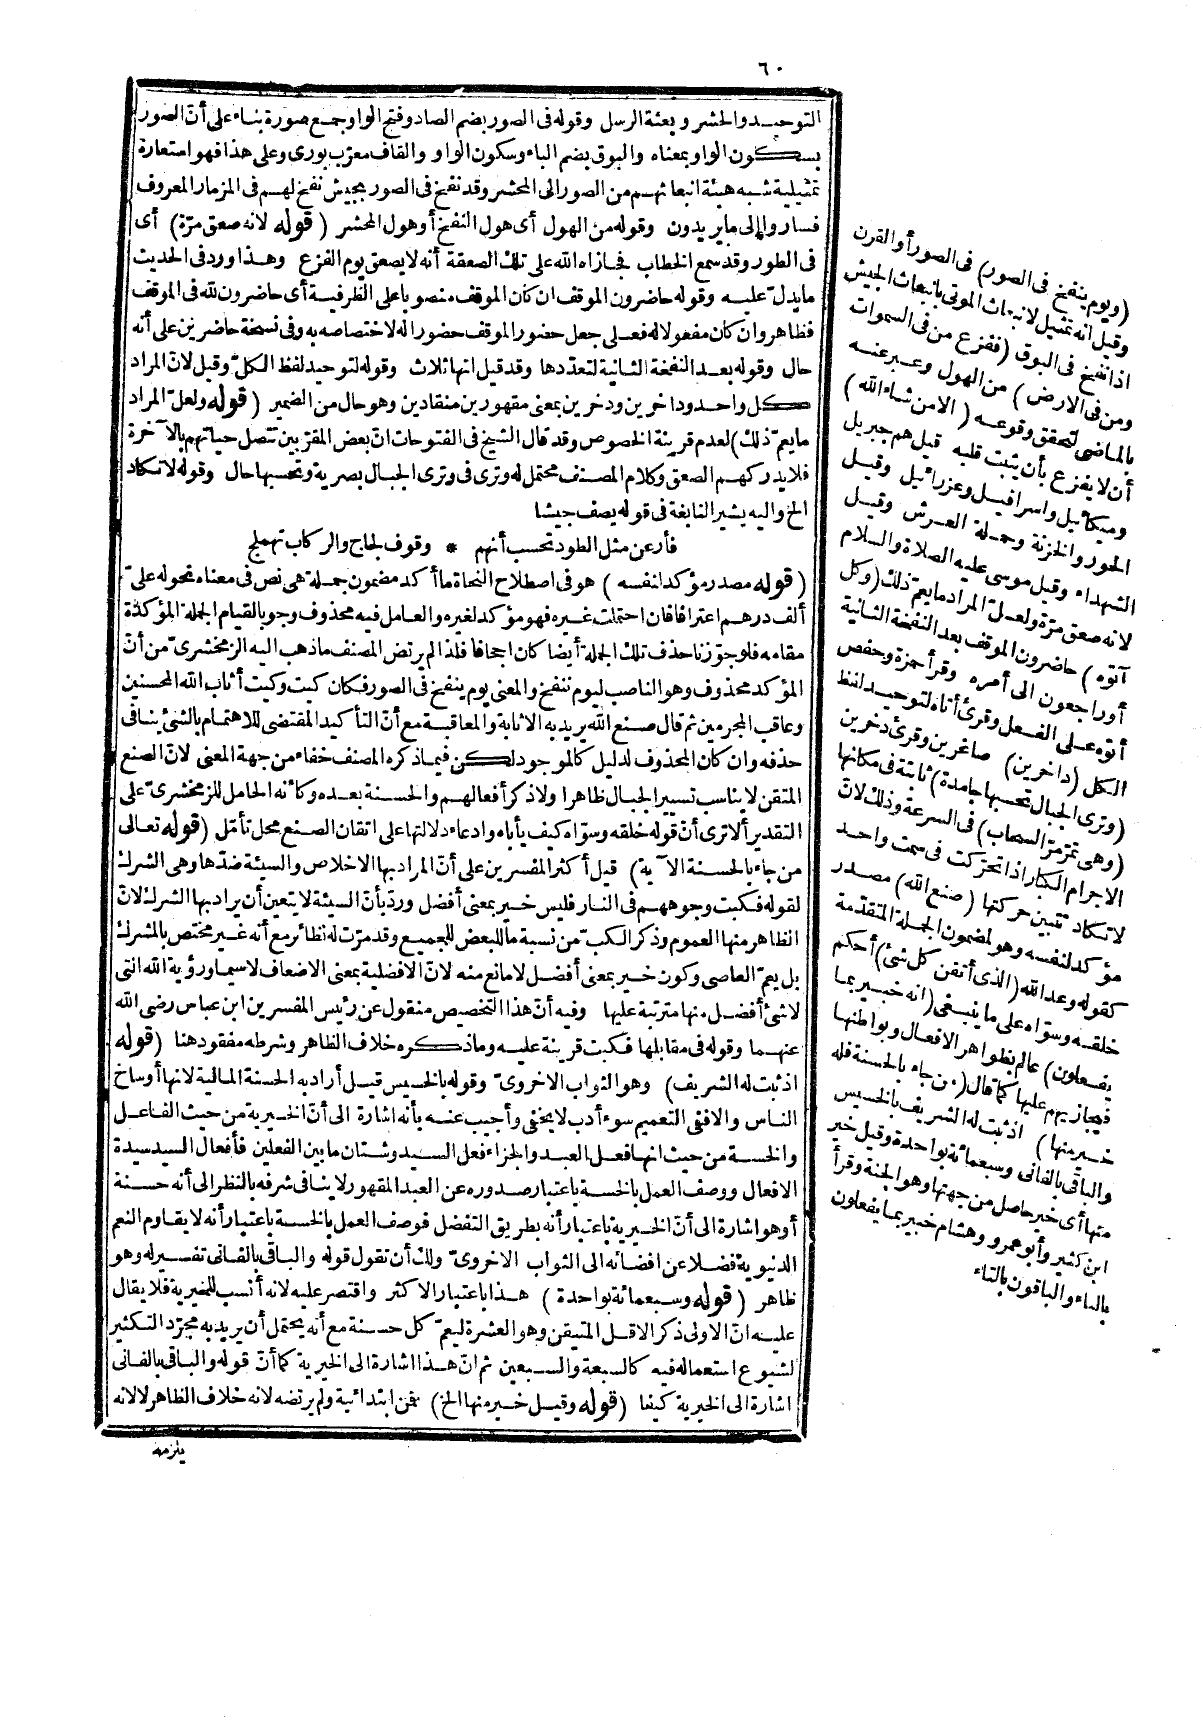 ٦٠
التوحيد والحشر وبعثة الرسل وقوله فى الصور بضم الصاد وفتح الواو جمع صورة بناء على أنّ الصور
بسكون الواو بمعناه والبوق بضم الباء وسكون الواو والقاف معرّب بورى وعلى هذا فهو استعارة
تمثيلية شبه هيئة انبعاثهم من الصور الى المحشر وقد نفخ فى الصور بجيش نفخ لهم فى المزمار المعروف
فساروا الى ما يريدون وقوله من الهول أى هول النفخ أو هول المحشر (قوله لانه صعق مرّة) أى
فى الطور وقد سمع الخطاب فجازاه الله على تلك الصعقة أنه لا يصعق يوم الفزع وهذا ورد فى الحديث
ما يدلّ عليه وقوله حاضرون الموقف ان كان الموقف منصوبا على الظرفية أى حاضرون لله فى الموقف
فظاهر وان كان مفعولا له فعلى جعل حضور الموقف حضورا له لاختصاصه به وفى نسخة حاضرين على أنه
حال وقوله بعد النفخة الثانية لتعددها وقد قيل انها ثلاث وقوله لتوحيد لفظ الكلّ وقيل لانّ المراد
كل واحد وداخرين ودخرين بمعنى مقهورين منقادين وهو حال من الضمير (قوله ولعلّ المراد
ما يعمّ ذلك) لعدم قرينة الخصوص وقد قال الشيخ فى الفتوحات انّ بعض المقرّبين تتصل حياتهم بالآخرة
فلا يدركهم الصعق وكلام المصنف محتمل له وترى فى وترى الجبال بصرية وتحسبها حال وقوله لا تكاد
الخ واليه يشير النابغة فى قوله يصف جيشا
فأرعن مثل الطود تحسب أنهم * وقوف لحاج والركاب تهملج
(قوله مصدر مؤكد لنفسه) هو فى اصطلاح النحاة ما أكد مضمون جملة هى نص فى معناه نحو له علىّ
ألف درهم اعترافا فان احتملت غيره فهو مؤكد لغيره والعامل فيه محذوف وجوبا لقيام الجملة المؤكدة
مقامه فلو جوّزنا حذف تلك الجملة أيضا كان اجحافا فلذا لم يرتض المصنف ما ذهب اليه الزمخشرىّ من أنّ
المؤكد محذوف وهو الناصب ليوم ننفخ والمعنى يوم ينفخ فى الصور فكان كيت وكيت أثاب الله المحسنين
وعاقب المجرمين ثم قال صنع الله يريد به الاثابة والمعاقبة مع أنّ التأكيد المقتضى للاهتمام بالشئ ينافى
حذفه وان كان المحذوف لدليل كالموجود لكن فيما ذكره المصنف خفاء من جهة المعنى لانّ الصنع
المتقن لا يناسب تسيير الجبال ظاهرا ولا ذكر أفعالهم والحسنة بعده وكأنه الحامل للزمخشرىّ على
التقدير ألا ترى أنّ قوله خلقه وسوّاه كيف يأباه وادعاء دلالتها على اتقان الصنع محل تأمّل (قوله تعالى
من جاء بالحسنة الآية) قيل أكثر المفسرين على أنّ المراد بها الاخلاص والسيئة ضدّها وهى الشرك
لقوله فكبت وجوههم فى النار فليس خير بمعنى أفضل وردّ بأنّ السيئة لا يتعين أن يراد بها الشرك لانّ
الظاهر منها العموم وذكر الكبّ من نسبة ما للبعض للجميع وقد مرّت له نظائر مع أنه غير مختص بالمشرك
بل يعمّ العاصى وكون خير بمعنى أفضل لا مانع منه لانّ الافضلية بمعنى الاضعاف لا سيما ورؤية الله التى
لا شئ أفضل منها مترتبة عليها وفيه أنّ هذا التخصيص منقول عن رئيس المفسرين ابن عباس رضى الله
عنهما وقوله فى مقابلها فكبت قرينة عليه وما ذكره خلاف الظاهر وشرطه مفقود هنا (قوله
اذ ثبت له الشريف) وهو الثواب الاخروىّ وقوله بالخسيس قيل أراد به الحسنة المالية لانها أوساخ
الناس والافنى التعميم سوء أدب لا يخفى وأجيب عنه بأنه اشارة الى أنّ الخيرية من حيث الفاعل
والخسة من حيث انها فعل العبد والجزاء فعل السيد وشتان ما بين الفعلين فأفعال السيد سيدة
الافعال ووصف العمل بالخسة باعتبار صدوره عن العبد المقهور لا ينافى شرفه بالنظر الى أنه حسنة
أو هو اشارة الى أنّ الخيرية باعتبار أنه بطريق التفضل فوصف العمل بالخسة باعتبار أنه لا يقاوم النعم
الدنيوية فضلا عن افضائه الى الثواب الاخروىّ ولك أن تقول قوله والباقى بالفانى تفسير له وهو
ظاهر (قوله وسبعمائة بواحدة) هذا باعتبار الاكثر واقتصر عليه لانه أنسب للخيرية فلا يقال
عليه انّ الاولى ذكر الاقل المتيقن وهو العشرة ليعمّ كل حسنة مع أنه يحتمل أن يريد به مجرّد التكثير
لشيوع استعماله فيه كالسبعة والسبعين ثم انّ هذا اشارة الى الخيرية كما أنّ قوله والباقى بالفانى
اشارة الى الخيرية كيفا (قوله وقيل خير منها الخ) فمن ابتدائية ولم يرتضه لانه خلاف الظاهر لا لانه
يلزمه
(ويوم ينفخ فى الصور) فى الصور أو القرن
وقيل انه تمثيل لانبعاث الموتى بانبعاث الجيش
اذا نفخ فى البوق (ففزع من فى السموات
ومن فى الارض) من الهول وعبر عنه
بالماضى لتحقق وقوعه (الا من شاء الله)
أن لا يفزع بأن يثبت قلبه قيل هم جبريل
وميكائيل واسرافيل وعزرائيل وقيل
الحور والخزنة وحملة العرش وقيل
الشهداء وقيل موسى عليه الصلاة والسلام
لانه صعق مرّة ولعلّ المراد ما يعمّ ذلك (وكل
آتوه) حاضرون الموقف بعد النفخة الثانية
أو راجعون الى أمره وقرأ حمزة وحفص
أتوه على الفعل وقرئ أتاه لتوحيد لفظ
الكل (داخرين) صاغرين وقرئ دخرين
(وترى الجبال تحسبها جامدة) ثابتة فى مكانها
(وهى تمرّ مرّ السحاب) فى السرعة وذلك لانّ
الاجرام الكبار اذا تحرّكت فى سمت واحد
لا تكاد تتبين حركتها (صنع الله) مصدر
مؤكد لنفسه وهو لمضمون الجملة المتقدمة
كقوله وعد الله (الذى أتقن كل شئ) أحكم
خلقه وسوّاه على ما ينبغى (انه خبير بما
يفعلون) عالم بظواهر الافعال وبواطنها
فيجازيهم عليها كما قال (من جاء بالحسنة فله
خير منها) اذ ثبت له الشريف بالخسيس
والباقى بالفانى وسبعمائة بواحدة وقيل خير
منها أى خير حاصل من جهتها وهو الجنة وقرأ
ابن كثير وأبو عمرو وهشام خبير بما يفعلون
بالياء والباقون بالتاء